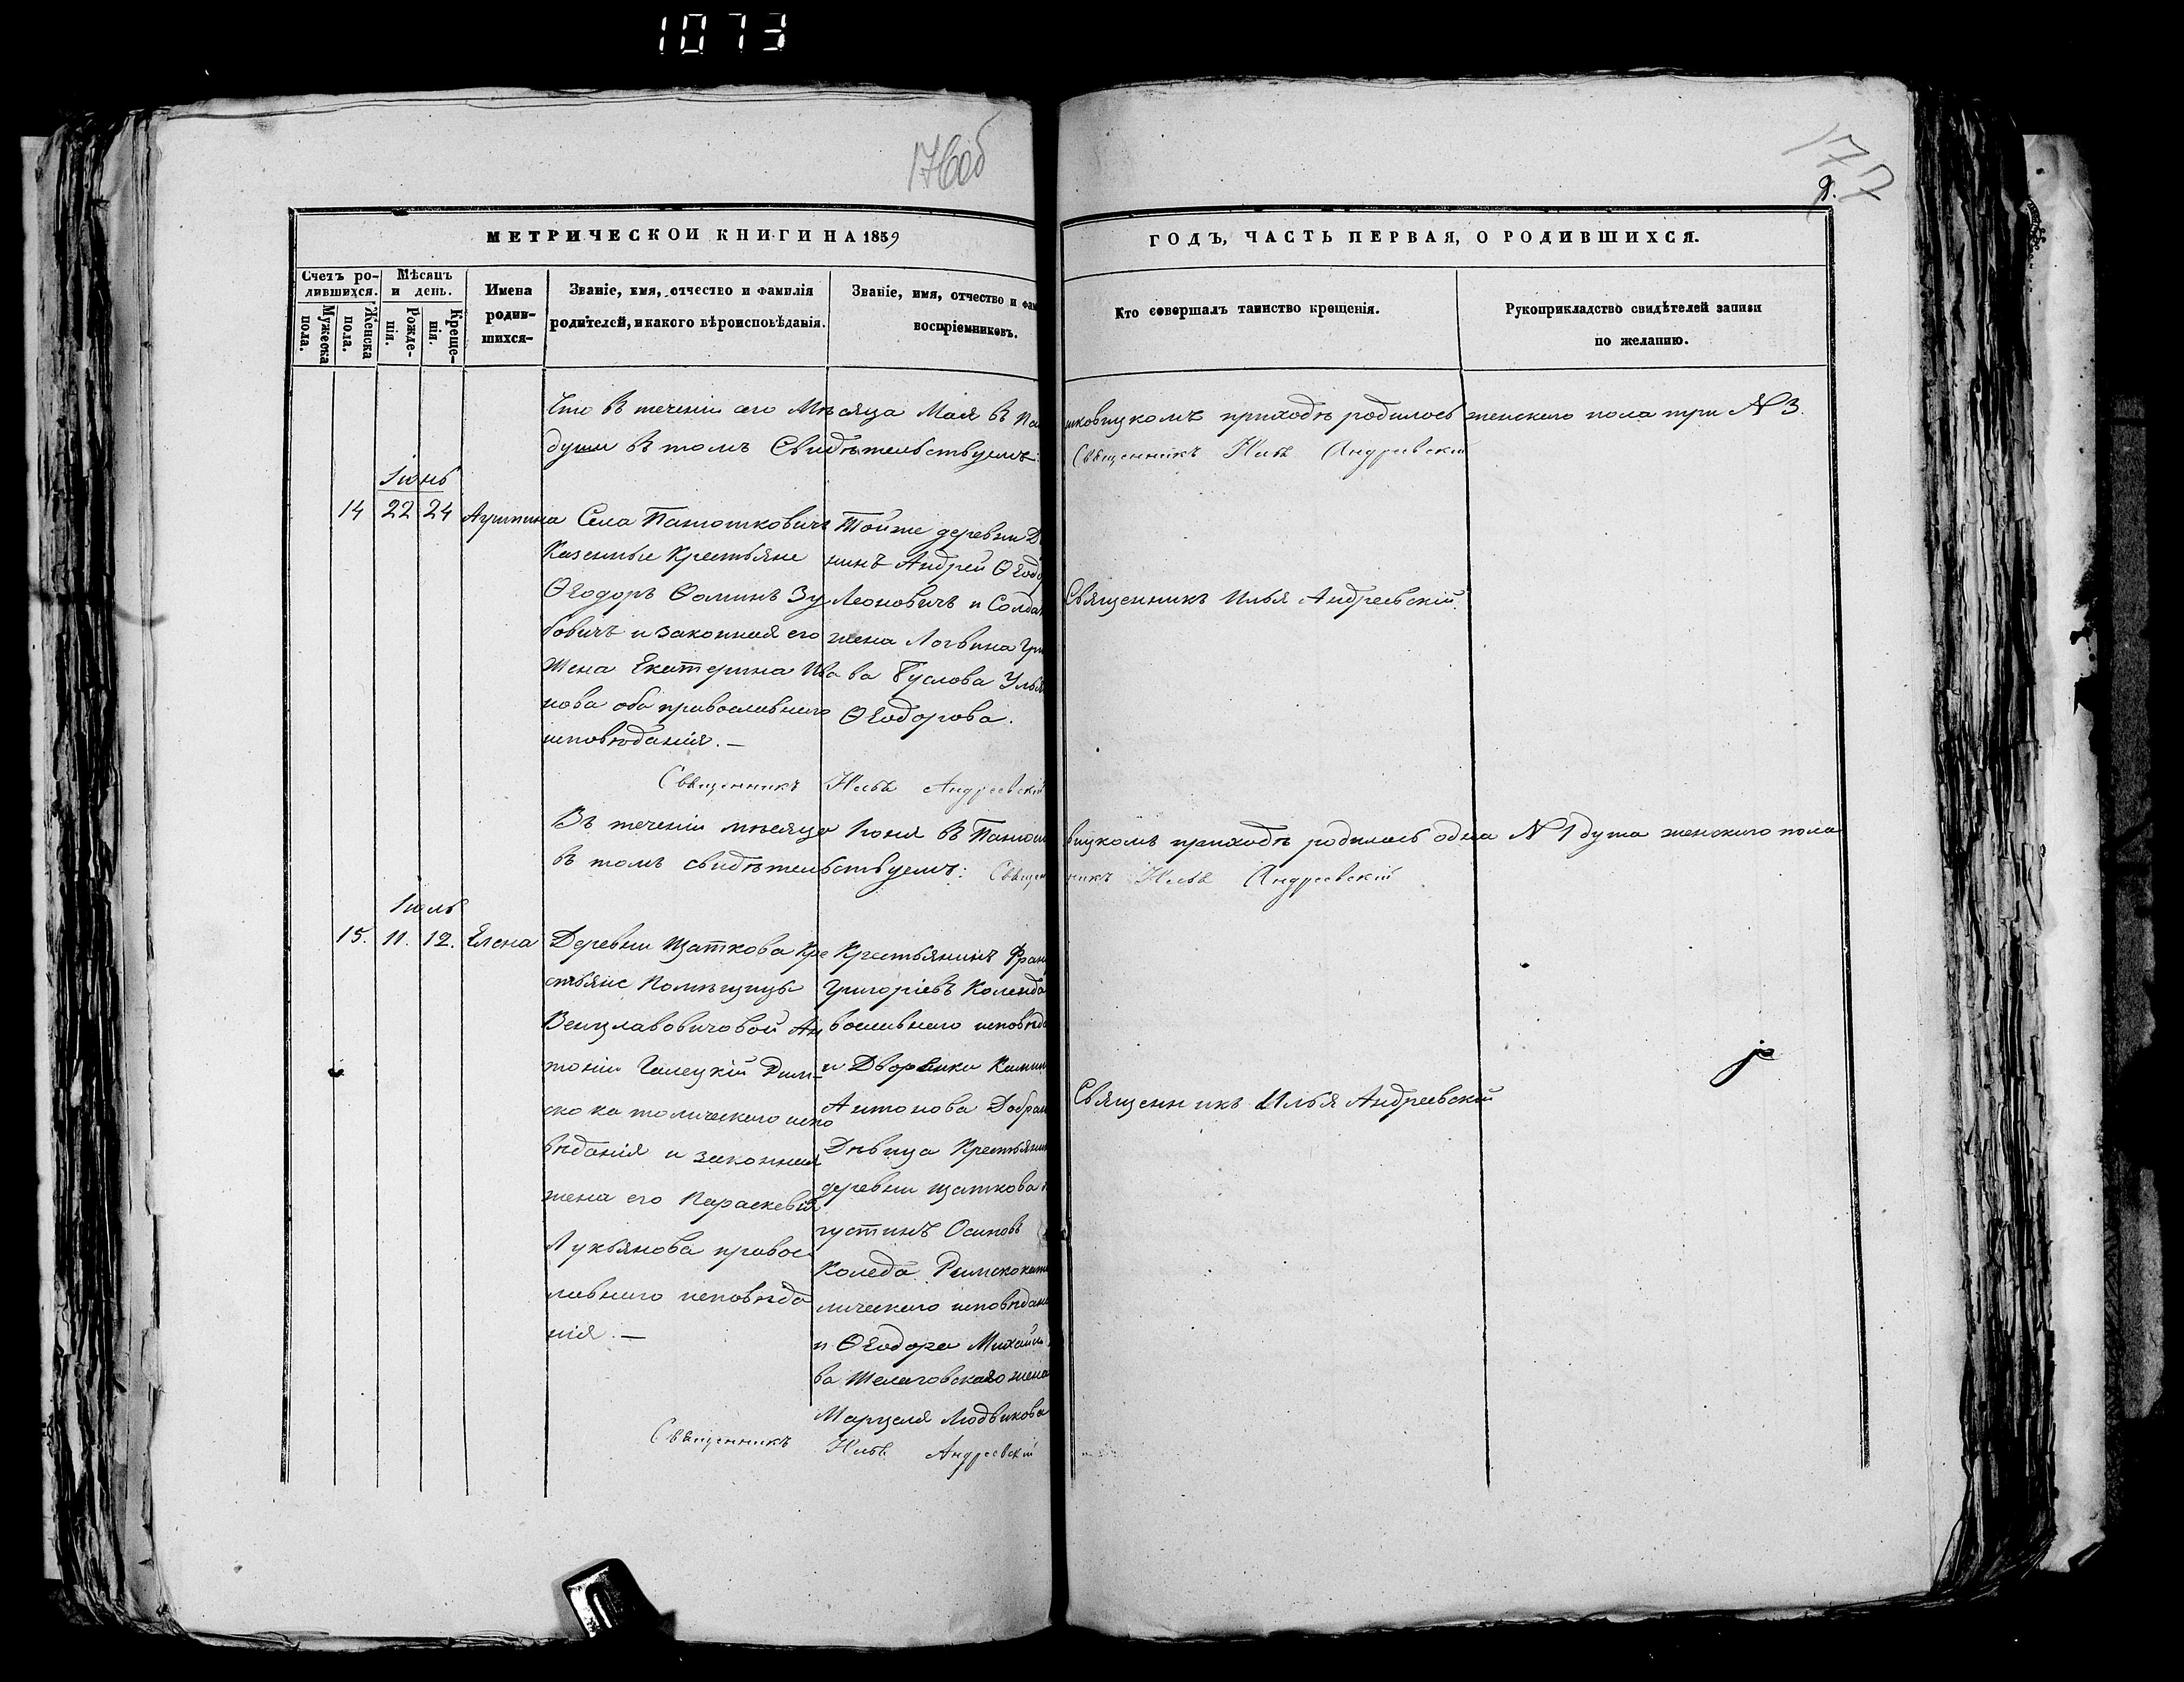 1073
176об
177
9.
МЕТРИЧЕСКОЙ КНИГИ НА 1859
ГОДЪ, ЧАСТЬ ПЕРВАЯ, О РОДИВШИХСЯ.
Счетъ ро-
дившихся.
Мужеска
пола.
Женска
пола.
Мѣсяцъ
и день.
Рожде-
нія.
Креще-
нія.
Имена
родив-
шихся-
Званіе, имя, отчество и фамилія
родителей, и какого вѣроисповѣданія.
Званіе, имя, отчество и фам
воспріемниковъ.
Кто совершалъ таинство крещенія.
Рукоприкладство свидѣтелей записи
по желанію.
Что въ теченіи сего Мѣсяца Мая въ Па
шковицкомъ приходѣ родилось женскаго пола три №3.
души въ томъ Свидѣтельствуемъ:
Священникъ Илья Андреевскій
Іюнь
14 22 24
Села Панютковичъ
Казенные Крестьяне
Ѳеодоръ Ѳоминъ Зу
бовичъ и законная его
жена Екатерина Ива
нова оба православнаго
исповѣданія. —
Тойже деревни
нинъ Андрей Ѳеодо
Леоновичъ и Солда
жена Логвина Гри
ва Буслова Улья
Ѳеодорова.
Священникъ Илья Андреевскій.
Священникъ Илья Андреевскій
Въ теченіи мѣсяца Іюня въ Панют
вицкомъ приходѣ родилась одна №1 душа женскаго пола
въ томъ свидѣтельствуемъ: Священ
никъ Илья Андреевскій
Іюль
15. 11. 12. Елена
Деревни Щаткова Кре
стьяне Помѣщицы
Венцлавовичовой Ан
тоній Галецкій Рим-
ско католическаго испо
вѣданія и законная
жена его Параскевія
Лукьянова правос
лавнаго исповѣда
нія. —
Крестьянинъ Фран
Григоріевъ Коленда
вославнаго исповѣд
и Дворянки
Антонова
Дѣвица Крестьянин
деревни Щаткова
густинъ Осиповъ
Коледа Римскокато
лическаго исповѣдан
и Ѳеодора Михайло
ва Шелеговскаго жена
Марцеля Людвикова
Священникъ Илья Андреевскій
Священникъ Илья Андреевскій